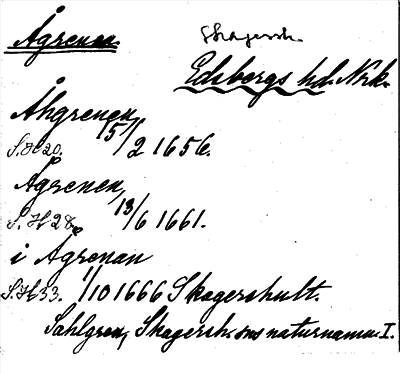 Ågrenen Skagersh.
Edsbergs hd. Nrk.
Åhgrenen,
S.H 20. 15/2 1656.
Ågrenen,
S.H 28. 13/6 1661.
i Ågrenan
S.H 33. 1/10 1666 Skagershult.
Sahlgren, Skagersh. sns naturnamn I.